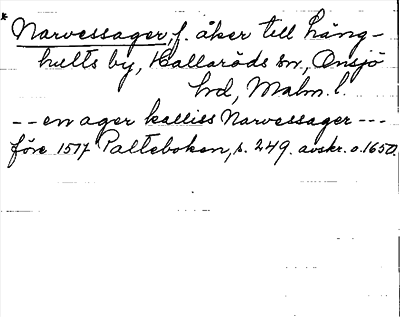 * Narvessager, f. åker till Häng-
hults by, Hallaröds sn, Onsjö
hd, Malm. l.
-- en ager kalliss Narvessager ---
före 1517 Palteboken, s. 249. avskr. o. 1650.